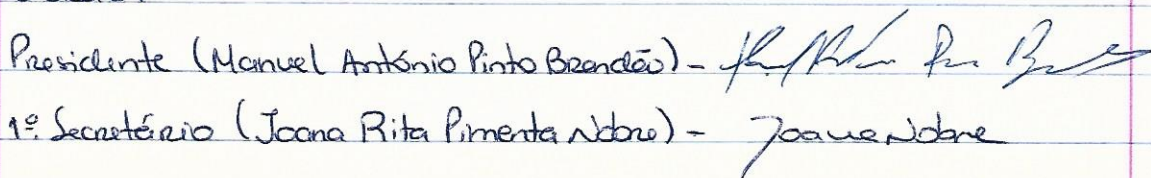 Presidente (Manuel António Pinto Brandão) -
1º. Secretário (Joana Rita Pimenta Nobre) - Joana Nobre